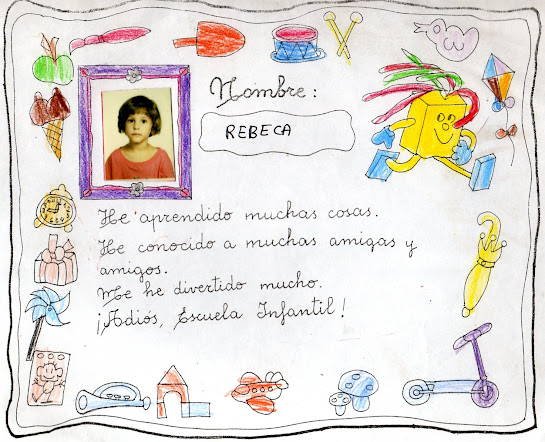 Nombre:
REBECA
He aprendido muchas cosas.
He conocido a muchas amigas y
amigos.
Me he divertido mucho.
¡Adiós, Escuela Infantil!